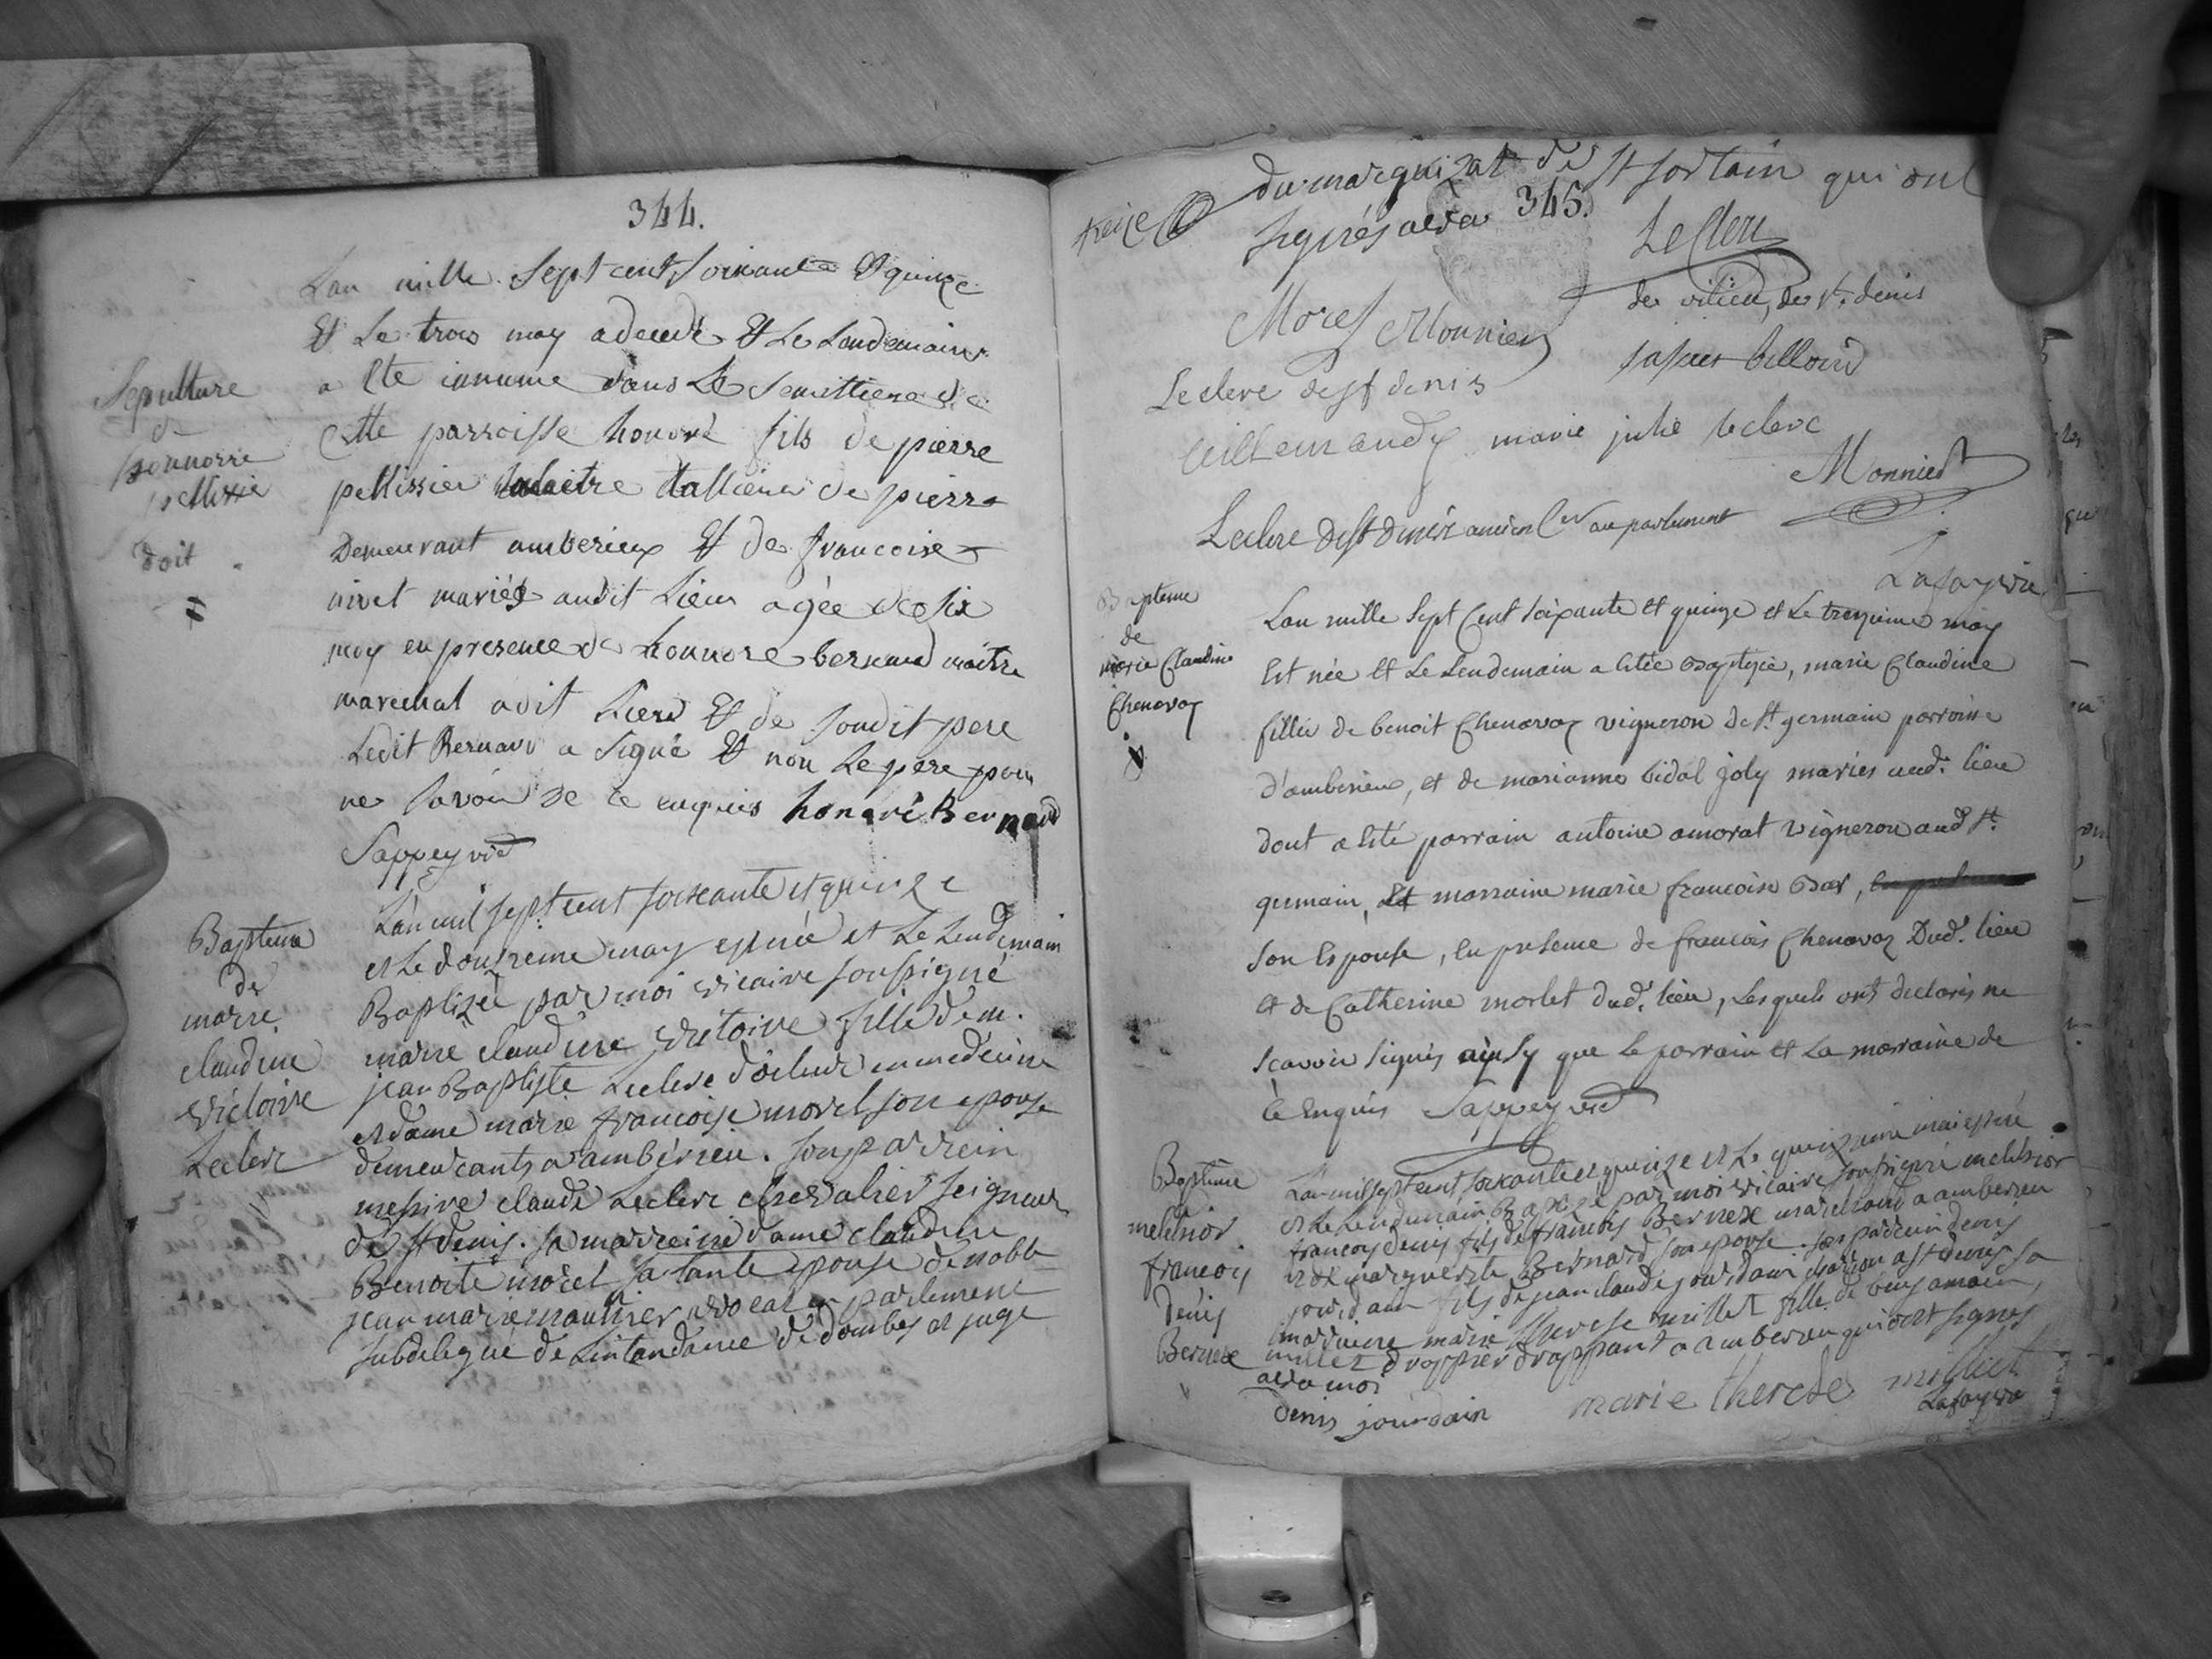 344.
Sepulture
de
honnorré
pellissié
doit
Lan mille sept cent soixante & quinze
& Le trois may a decedé & Le Landemain
a Eté innumé dans Le Semittiere de
Cette parroisse honoré fils de pierre
pellissier maitre tallieur de pierre
Demeurant amberieux & de francoise
nivet mariés audit Lieu agée de six
moy en presence de honnore bernard maitre
marechal adit Lieu & de soudit pere
Ledit Bernard a signé & non Le pere pour
ne savoir de ce enquis honoré Bernard
Sappey vic
Baptême
de
marie
claudine
victoire
Leclerc
L'an mil sept cent soixante et quinze
et le douzieme may est née et Le Lendemain
Baptizée par moi vicaire soussigné
marie claudine victoire fille de m.
jean Baptiste Leclerc docteur en medecine
et dame marie francoise morel son epouse
demeurants a ambérieu. son parrein
messire claude Leclerc chevalier seigneur
de st denis. sa marreine dame claudine
Benoite morel sa tante epouse de noble
jean marie monnier avocat en parlement
subdelegué de Lintandance de dombes et juge
345.
du marquizat de st sorlain qui ont
signés avec
Leclerc
Morel Monnier
de vilieu, de st. denis
Leclerc de st denis
jaques billioud
Guillemaudy marie julie leclerc
Monnier
Leclerc de st denis ancien Cer au parlement
Lafay vic
Bapteme
de
marie Claudine
Chenavaz
Lan mille sept Cent soixante et quinze et Le treizieme may
Est née et Le Lendemain a Eté Baptizée, marie Claudine
fille de benoit Chenavaz vigneron de st. germain parroisse
d'amberieu, et de marianne vidal joly mariés aud. lieu
dont a Eté parrain antoine amorat vigneron aud st.
germain, et marraine marie francoise Bar,
son Epouse, En presence de francois Chenavaz Dud. lieu
et de Catherine morlet dud. lieu, Lesquels ont declarés ne
scavoir signés ainsy que le parrain et La marraine de
ce Enquis Sappey vic
Baptême
de
melchior
francois
Denis
Bernex
Lan mil sept cent soixante et quinze et Le quinzieme mai est né
et Le Lendemain Baptizé par moi vicaire soussigné melchior
francois denis fils de francois Bernex marchand a amberieu
et de marguerite Bernard son epouse. son parrein denis
jourdain fils de jean claude jourdain charon a st denis sa
marreine marie therese millet fille de benjamain
millet drappier drappant a amberieu qui ont signés
avec moi
denis jourdain marie therese milliet
Lafay vic